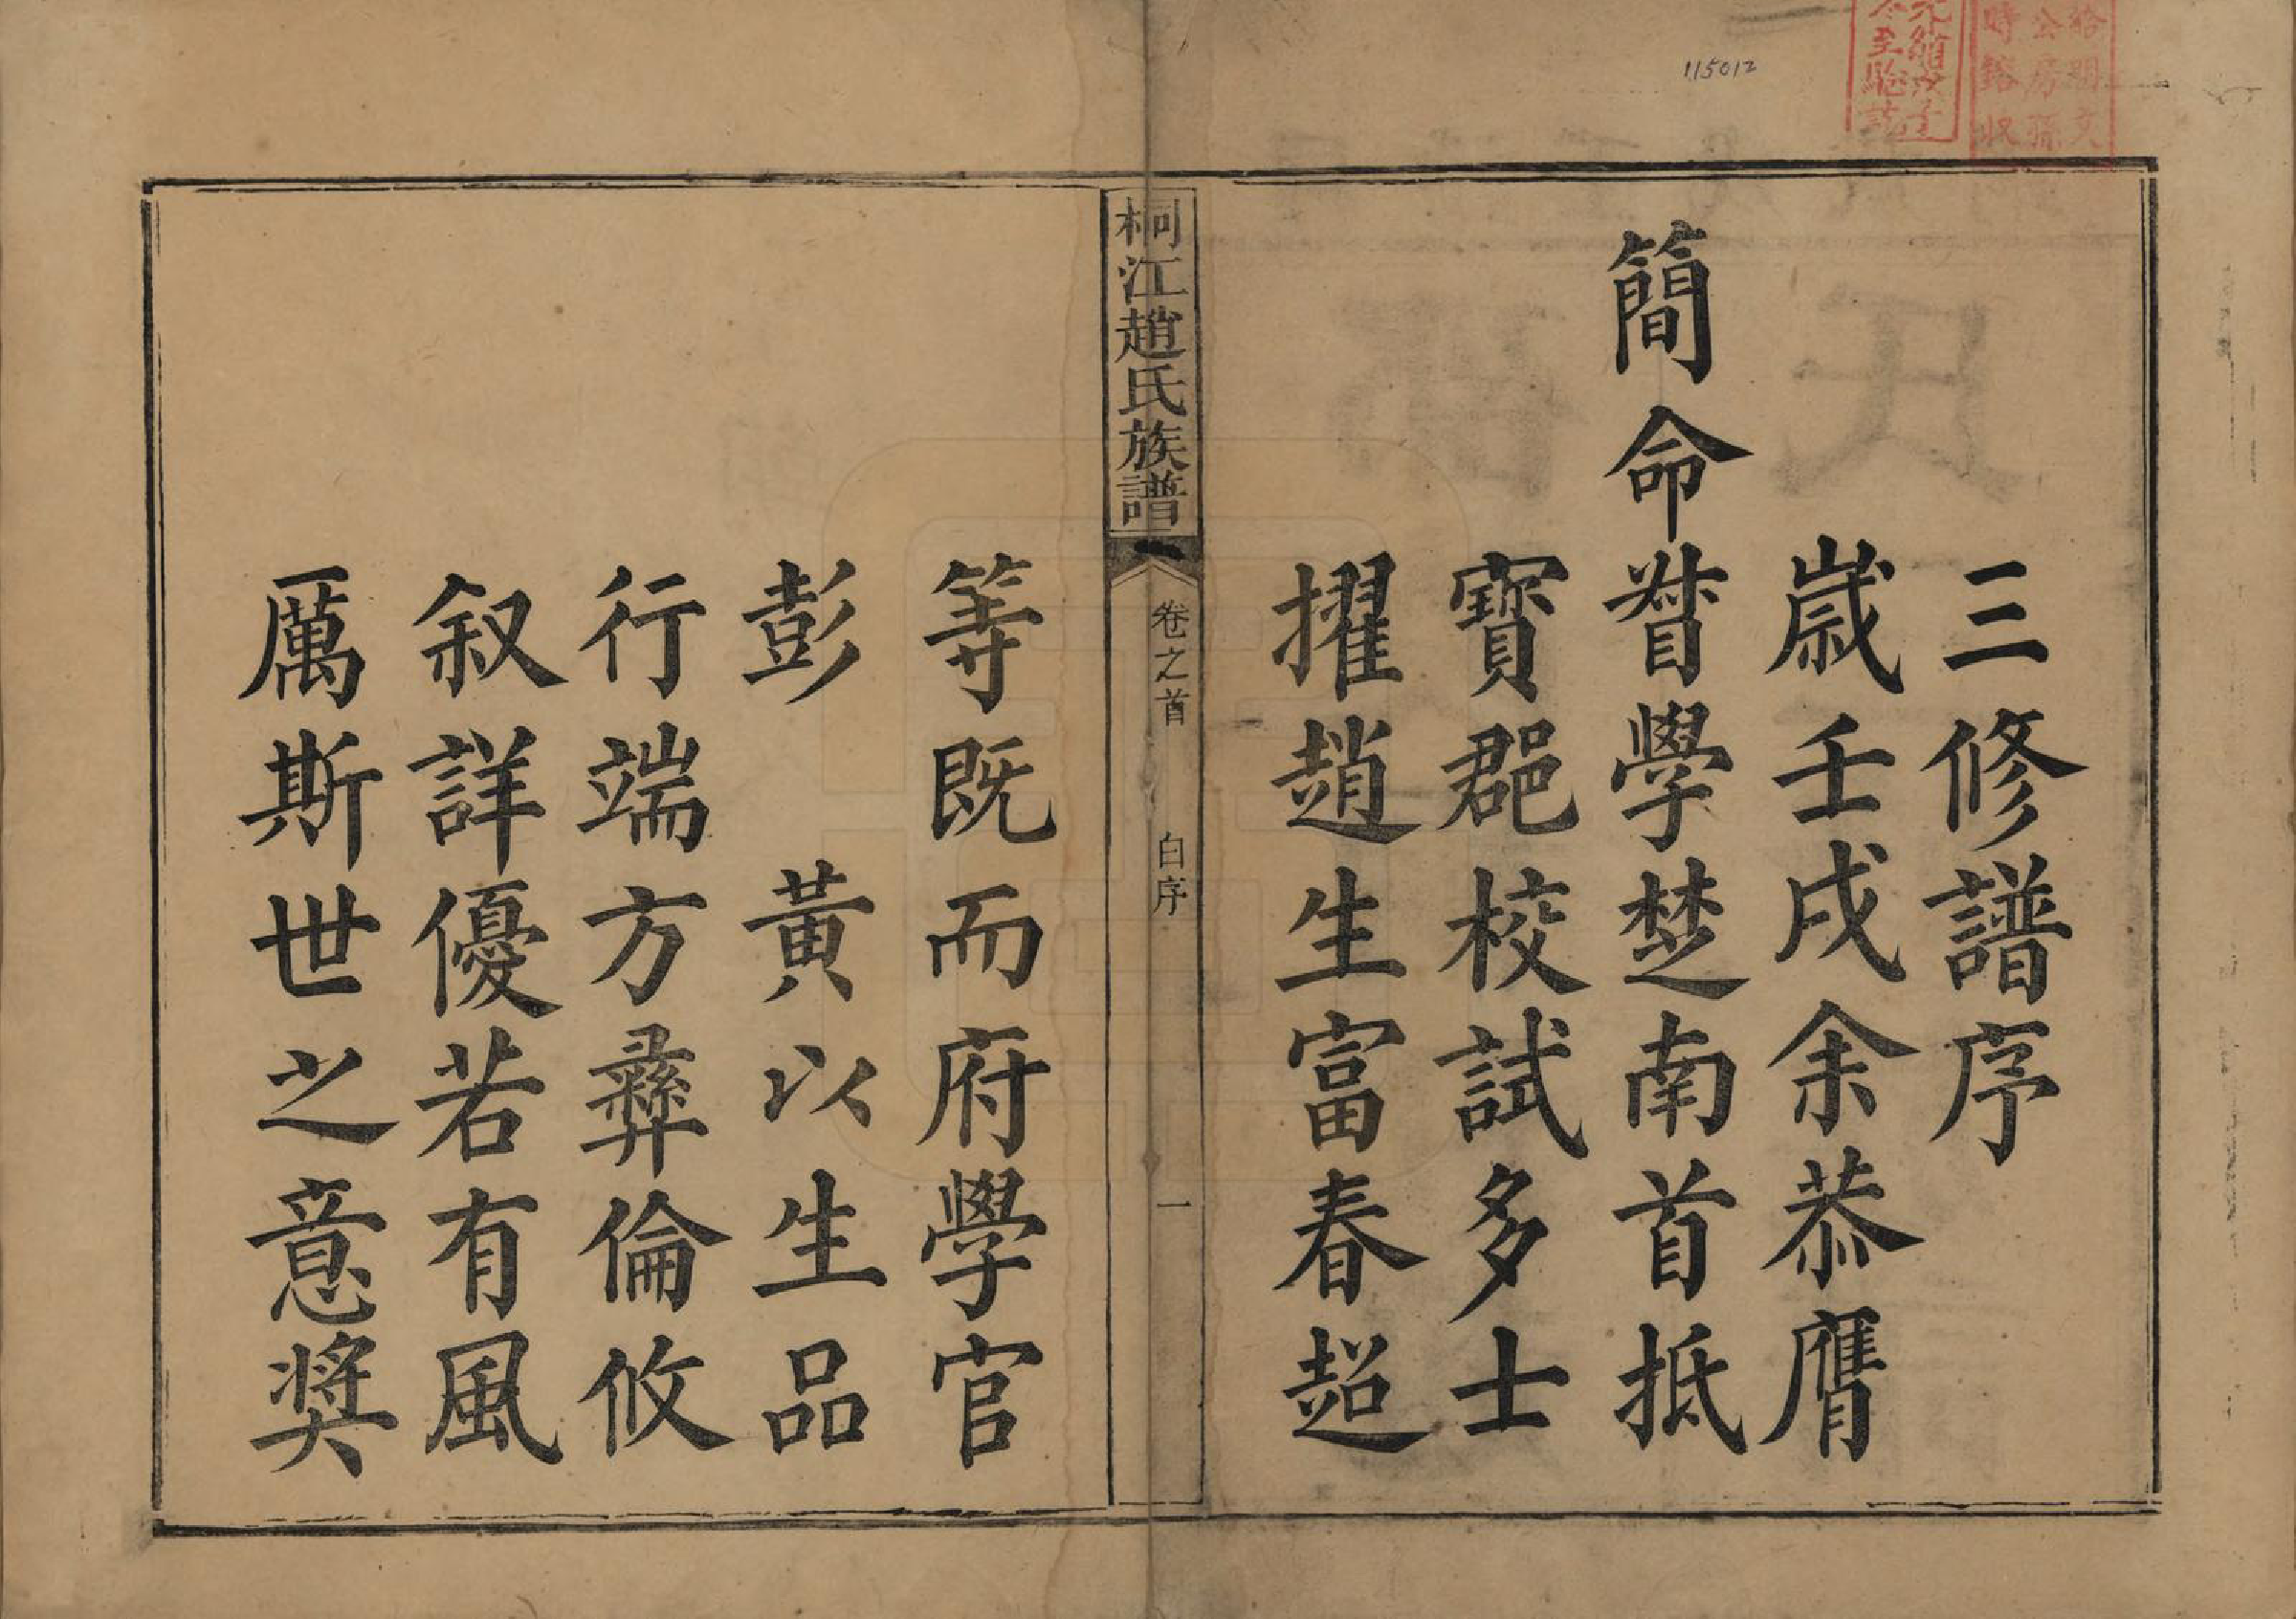 三修譜序
歲壬戌余恭膺
簡命督學楚南首抵
寶郡校試多士
擢趙生富春超
桐江趙氏族譜
卷之首
白序
一
等既而府學官
彭 黃以生品
行端方彝倫攸
叙詳優若有風
厲斯世之意奬
115012